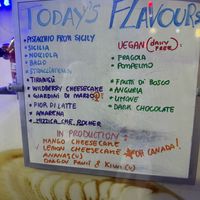 TODAY'S FLAVOURS
PISTACHIO FROM SICILY
SICILIA
NOCCIOLA
BACIO
STRACCIATELLA
TIRAMISÙ
WILDBERRY CHEESECAKE
GIARDINI DI MARZO
FIOR DI LATTE
AMARENA
MIZZICA CHE ROCHER
VEGAN (DAIRY FREE)
FRAGOLA
POMPELMO
FRUTTI DI BOSCO
ANGURIA
LIMONE
DARK CHOCOLATE
IN PRODUCTION:
MANGO CHEESECAKE
LEMON CHEESECAKE OH CANADA!
ANANAS (V)
DRAGON FRUIT & KIWI (V)